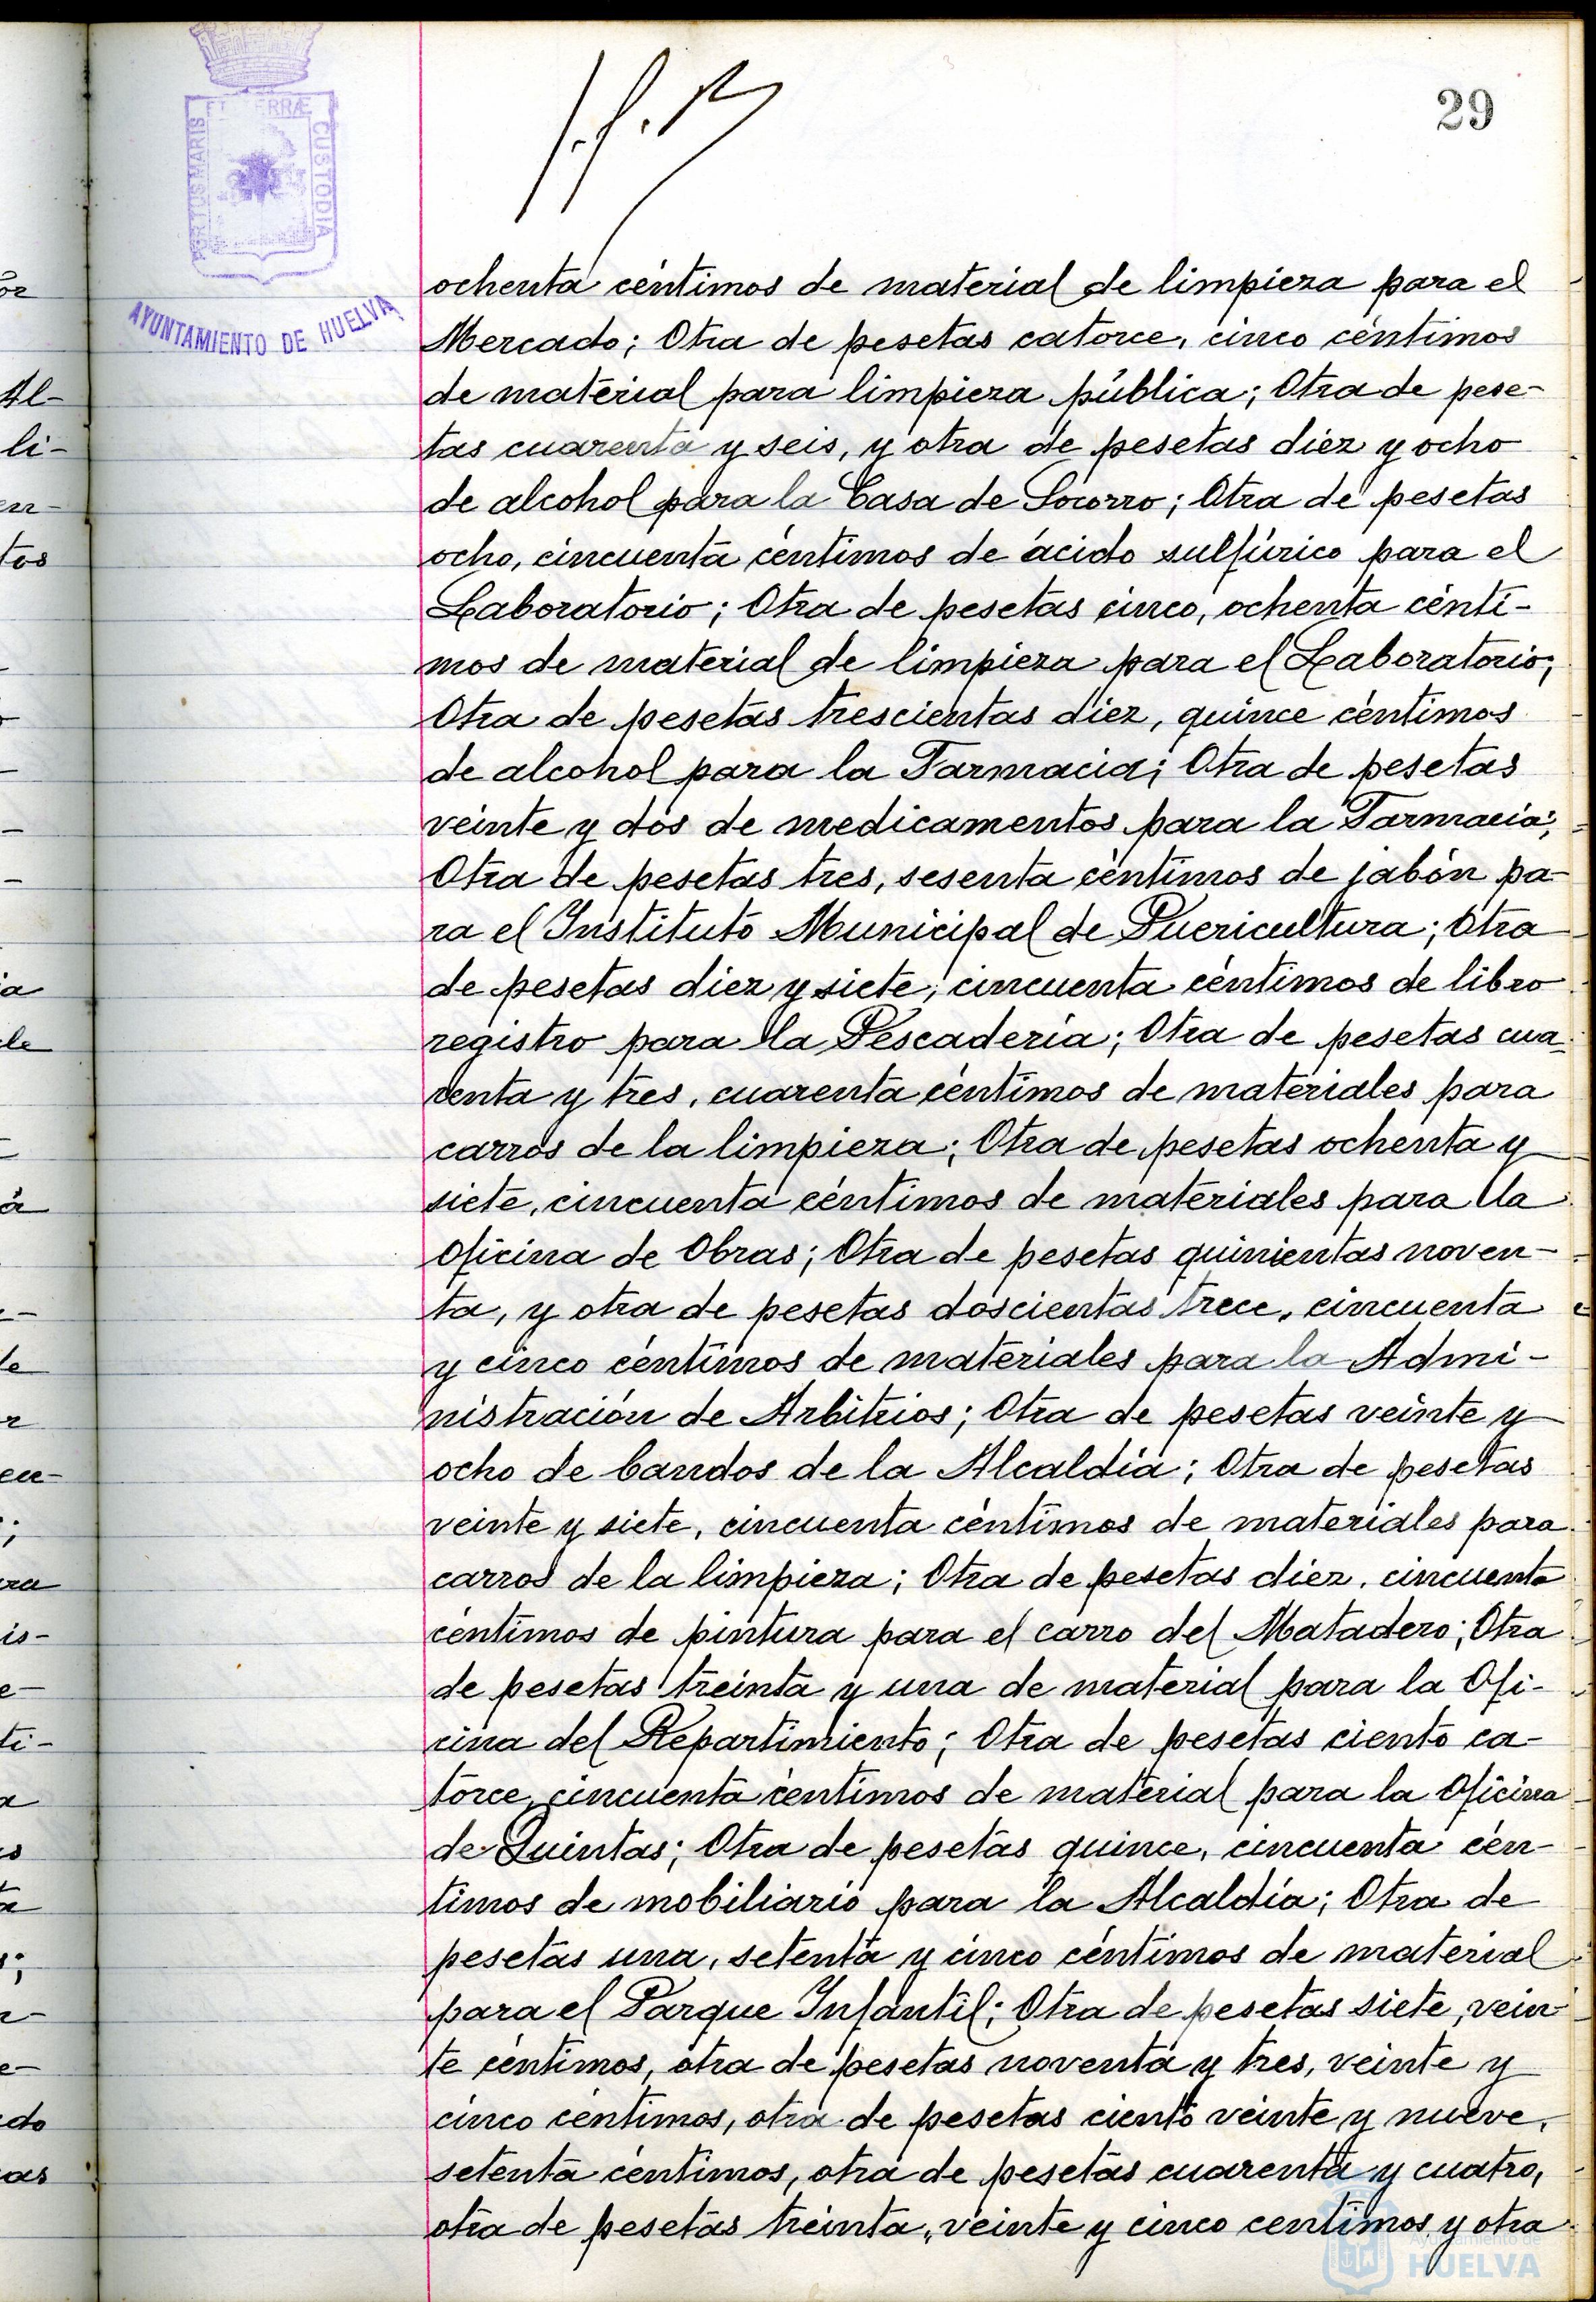 29
PORTUS MARIS ET TERRÆ CUSTODIA
AYUNTAMIENTO DE HUELVA
ochenta céntimos de material de limpieza para el
Mercado; Otra de pesetas catorce, cinco céntimos
de material para limpieza pública; Otra de pese-
tas cuarenta y seis, y otra de pesetas diez y ocho
de alcohol para la Casa de Socorro; Otra de pesetas
ocho, cincuenta céntimos de ácido sulfúrico para el
Laboratorio; Otra de pesetas cinco, ochenta cénti-
mos de material de limpieza para el Laboratorio;
Otra de pesetas trescientas diez, quince céntimos
de alcohol para la Farmacia; Otra de pesetas
veinte y dos de medicamentos para la Farmacia;
Otra de pesetas tres, sesenta céntimos de jabón pa-
ra el Instituto Municipal de Puericultura; Otra
de pesetas diez y siete, cincuenta céntimos de libro
registro para la Pescadería; Otra de pesetas cua-
renta y tres, cuarenta céntimos de materiales para
carros de la limpieza; Otra de pesetas ochenta y
siete, cincuenta céntimos de materiales para la
Oficina de Obras; Otra de pesetas quinientas noven-
ta, y otra de pesetas doscientas trece, cincuenta
y cinco céntimos de materiales para la Admi-
nistración de Arbitrios; Otra de pesetas veinte y
ocho de bandos de la Alcaldía; Otra de pesetas
veinte y siete, cincuenta céntimos de materiales para
carros de la limpieza; Otra de pesetas diez, cincuenta
céntimos de pintura para el carro del Matadero; Otra
de pesetas treinta y una de material para la Ofi-
cina del Repartimiento; Otra de pesetas ciento ca-
torce, cincuenta céntimos de material para la Oficina
de Quintas; Otra de pesetas quince, cincuenta cén-
timos de mobiliario para la Alcaldía; Otra de
pesetas una, setenta y cinco céntimos de material
para el Parque Infantil; Otra de pesetas siete, vein-
te céntimos, otra de pesetas noventa y tres, veinte y
cinco céntimos, otra de pesetas ciento veinte y nueve,
setenta céntimos, otra de pesetas cuarenta y cuatro,
otra de pesetas treinta, veinte y cinco centimos y otra
Ayuntamiento de
HUELVA